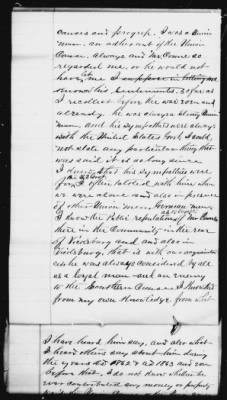 causes and progress. I was a Union
man, an adherent of the Union
Cause, always and Mr. so
regarded me, or he would not
have, me I
his sentiments. So far as
I recollect before the war soon and
already he was always Union
man, and his sympathies were always
with the United States Govt. I could
not state any particular thing that
was said it is so long since
I that his sympathies were
for I often talked with him when
we were alone and also in presence
of other Union men, German men,
I know the Public reputation of Mr
there in the Community in the rear
of Vicksburg and and also in
Vicksburg, that is with our
he was always considered by all
as a loyal man and an enemy
to the Southern Cause. I
from my own knowledge from
I have heard him say, and also what
I heard others say about him during
the years of 1862 and 1863 and
before that. I do not whether he
ever contributed any money or property